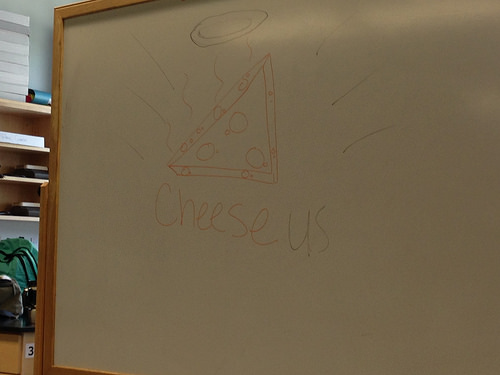 Cheese us
3